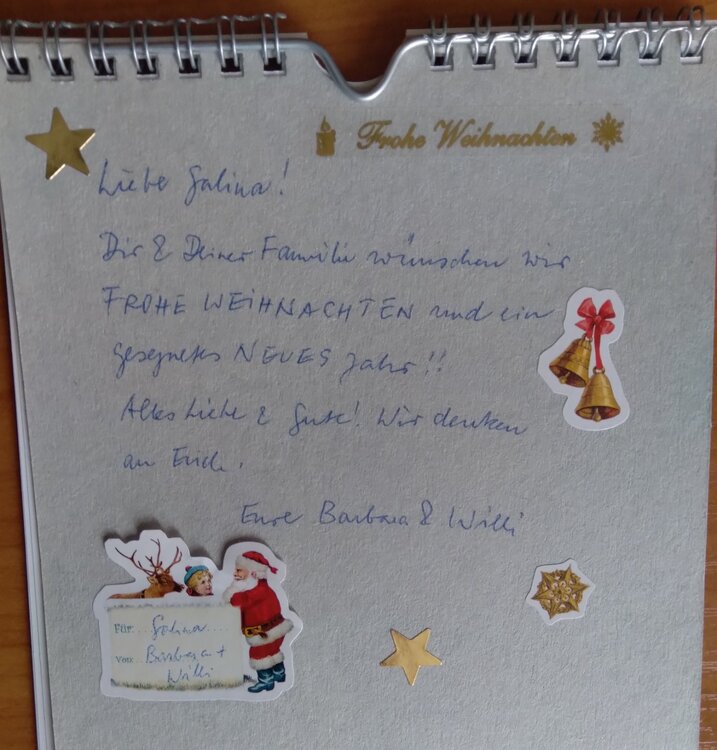 Frohe Weihnachten
Liebe Galina!
Dir & Deiner Familie wünschen wir
FROHE WEIHNACHTEN und ein
gesegnetes NEUES Jahr!!
Alles Liebe & Gute! Wir denken
an Euch.
Eure Barbara & Willi
Für: Galina
von: Barbara +
Willi